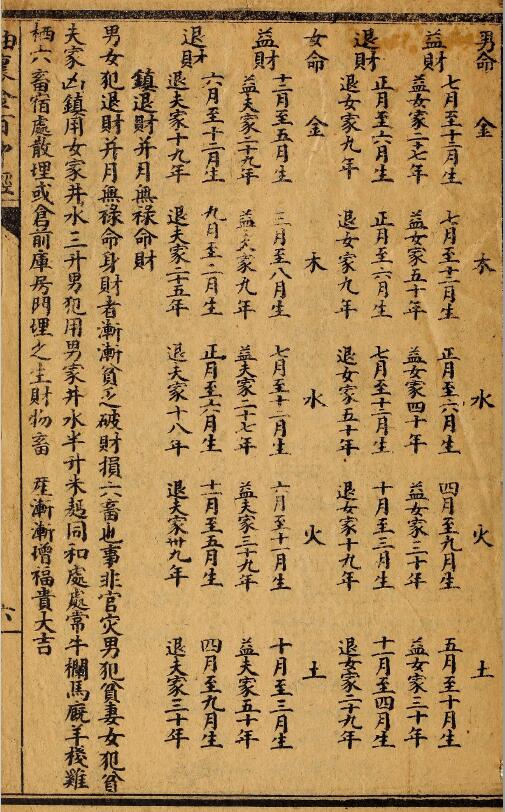 男命 金 木 水 火 土
益財 七月至十二月生 七月至十二月生 正月至六月生 四月至九月生 五月至十月生
益女家二十七年 益女家五十年 益女家四十年 益女家三十年 益女家三十年
退財 正月至六月生 正月至六月生 七月至十二月生 十月至三月生 十一月至四月生
退女家九年 退女家九年 退女家五十年 退女家十九年 退女家二十九年
女命 金 木 水 火 土
益財 十二月至五月生 三月至八月生 七月至十二月生 六月至十一月生 十月至三月生
益夫家二十九年 益夫家九年 益夫家二十七年 益夫家三十九年 益夫家五十年
退財 六月至十一月生 九月至二月生 正月至六月生 十二月至五月生 四月至九月生
退夫家十九年 退夫家二十五年 退夫家十八年 退夫家卅九年 退夫家三十年
鎮退財并月無祿命財
男女犯退財并月無祿命身財者漸漸貧乏破財損六畜也事非官灾男犯貧妻女犯貧
夫家凶鎮用女家井水三升男犯用男家井水半升米起同和處處常牛欄馬厩羊棧雞
栖六畜宿處散埋或倉前庫房門埋之生財物畜 産漸漸增福貴大吉
六